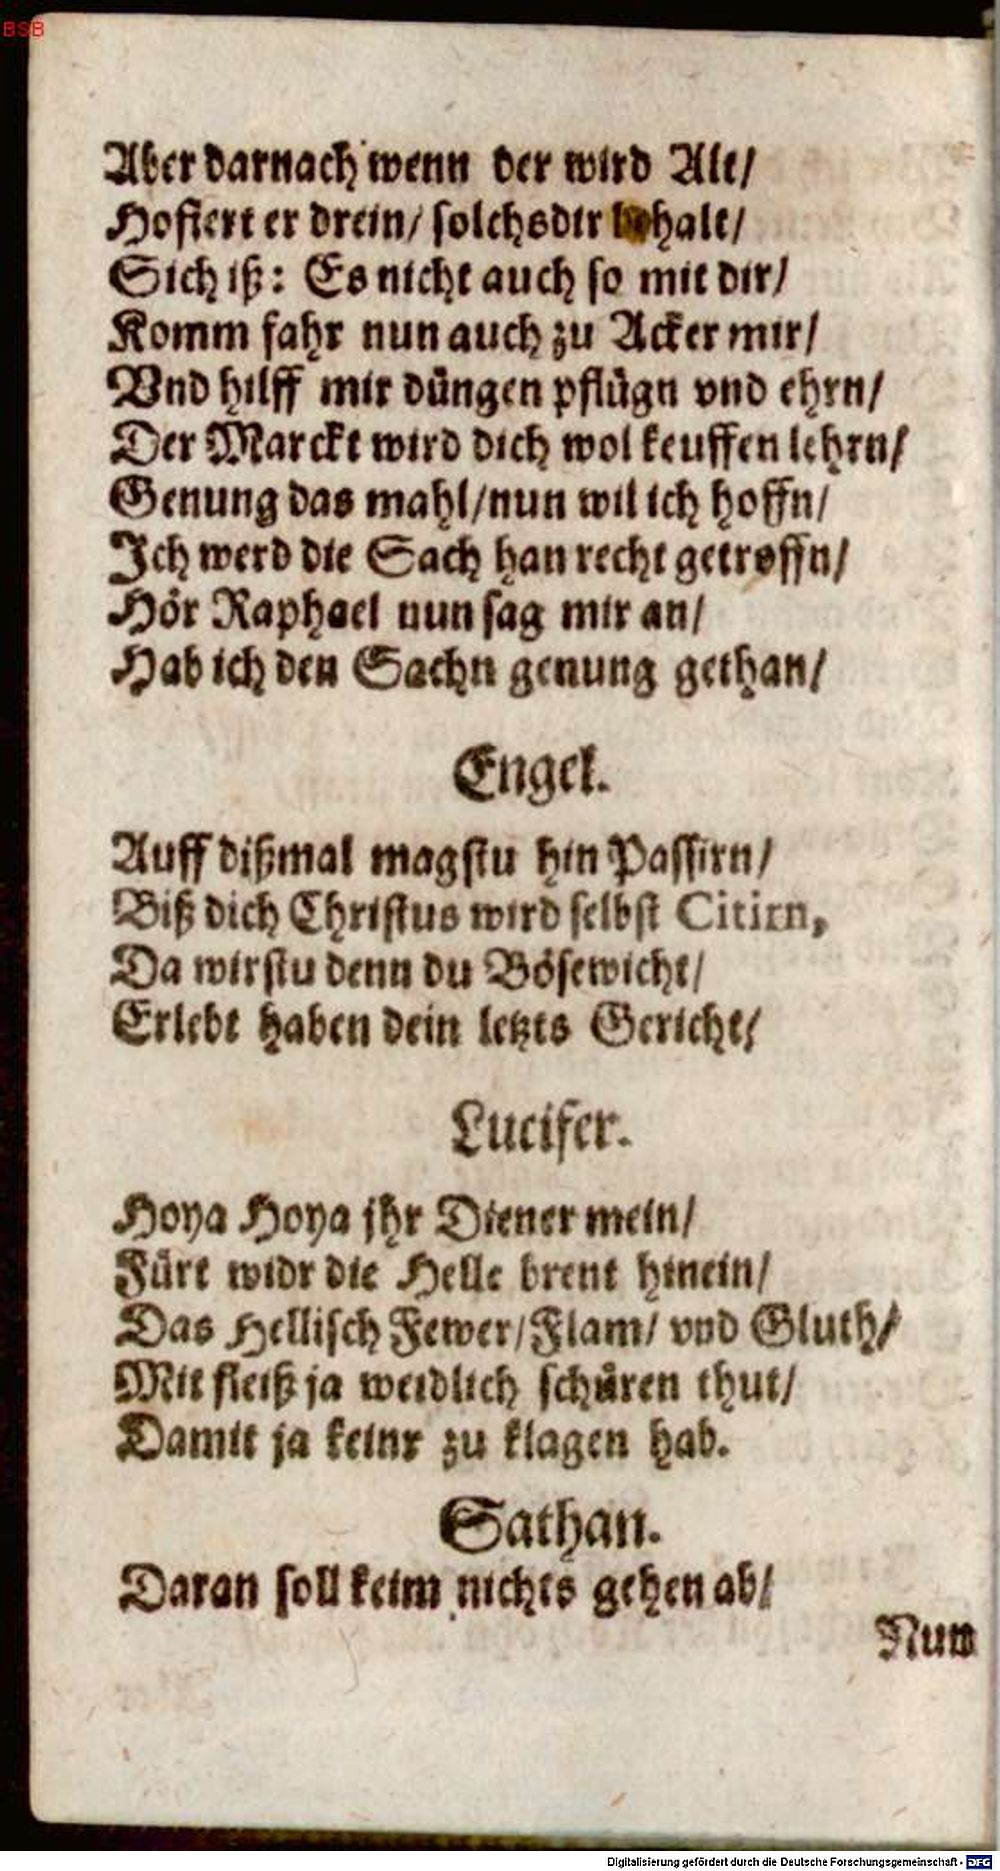 BSB
Aber darnach wenn der wird Alt/
Hofiert er drein/ solchs dir behalt/
Sich iß: Es nicht auch so mit dir/
Komm fahr nun auch zu Acker mir/
Vnd hilff mir düngen pflügn vnd ehrn/
Der Marckt wird dich wol keuffen lehrn/
Genung das mahl/nun wil ich hoffn/
Ich werd die Sach han recht getroffn/
Hör Raphael nun sag mir an/
Hab ich den Sachn genung gethan/
Engel.
Auff dißmal magstu hin Passirn/
Biß dich Christus wird selbst Citirn,
Da wirstu denn du Bösewicht/
Erlebt haben dein letzts Gericht/
Lucifer.
Hoya Hoya jhr Diener mein/
Fürt widr die Helle brent hinein/
Das Hellisch Fewer/Flam/ vnd Gluth/
Mit fleiß ja weidlich schüren thut/
Damit ja keinr zu klagen hab.
Sathan.
Daran soll keim nichts gehen ab/
Nun
Digitalisierung gefördert durch die Deutsche Forschungsgemeinschaft - DFG